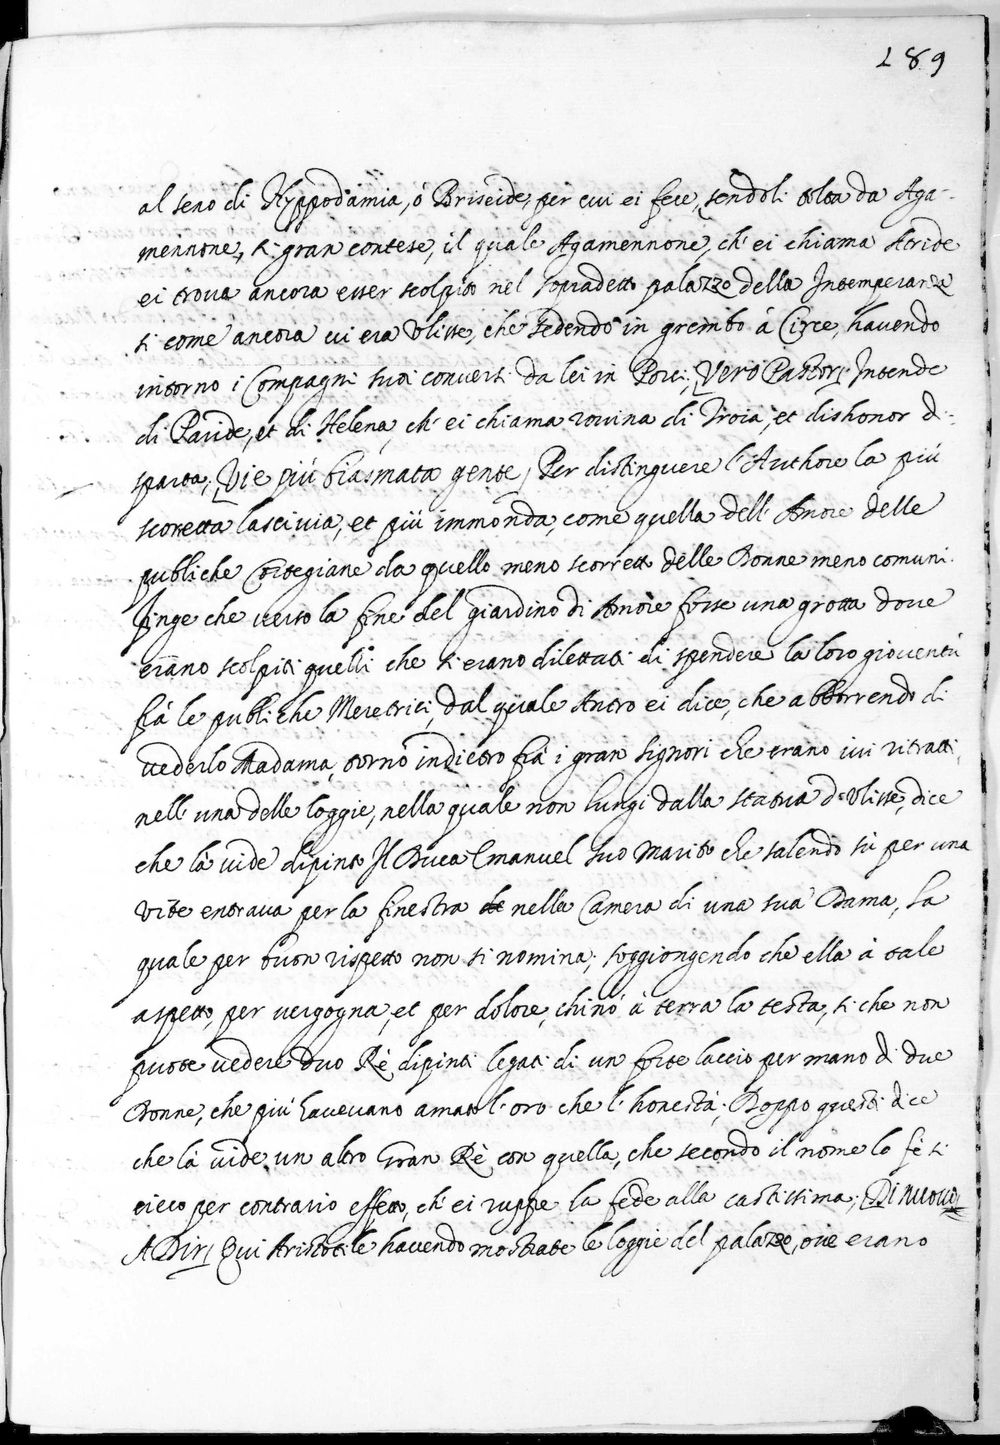 289
al seno di Hyppodamia, ó Briseide, per cui ei fece, sendoli tolta da Aga-
mennone, si gran contese, il quale Agamennone, ch' ei chiama Atride
ei trova ancora esser scolpito nel sopradetto palazzo della Intemperanza
si come ancora vi era Ulisse, che sedendo in grembo á Circe, havendo
intorno i Compagni suoi conversi da lei in Porci; Vero Pastor; Intende
di Paride, et di Helena, ch' ei chiama rovina di Troia, et dishonor di
sparta; Vie più biasmata gente; Per distinguere l'Authore la più
scorretta lascivia, et più immonda, come quella dell' Amore delle
publiche Cortegiane da quello meno scorretto delle Donne meno comuni.
finge che verso la fine del giardino di Amore fusse una grotta dove
erano scolpiti quelli che si erano dilettati di spendere la loro gioventù
frà le publiche Meretrici, dal quale Antro ei dice, che abborrendo di
vederlo Madama, tornò indietro frà i gran signori che erano ivi ritratti
nell' una delle loggie, nella quale non lungi dalla statua d'Ulisse, dice
che là vide dipinto Il Duca Emanuel suo Marito che salendo sù per una
vite entrava per la finestra de nella Camera di una sua Dama, La
quale per buon rispetto non si nomina; soggiongendo che ella à tale
aspetto, per vergogna, et per dolore, chinó à terra la testa, si che non
puote vedere duo Rè dipinti legati di un forte laccio per mano di due
Donne, che più havevano amato l' oro che l' honestà; Doppo questi dice
che là vide un altro Gran Rè con quella, che secondo il nome lo fè si
cieco per contrario effetto, ch' ei ruppe la fede alla castissima; Di nuovo
A Dir; Qui Aristotile havendo mostrate le loggie del palazzo, ove erano